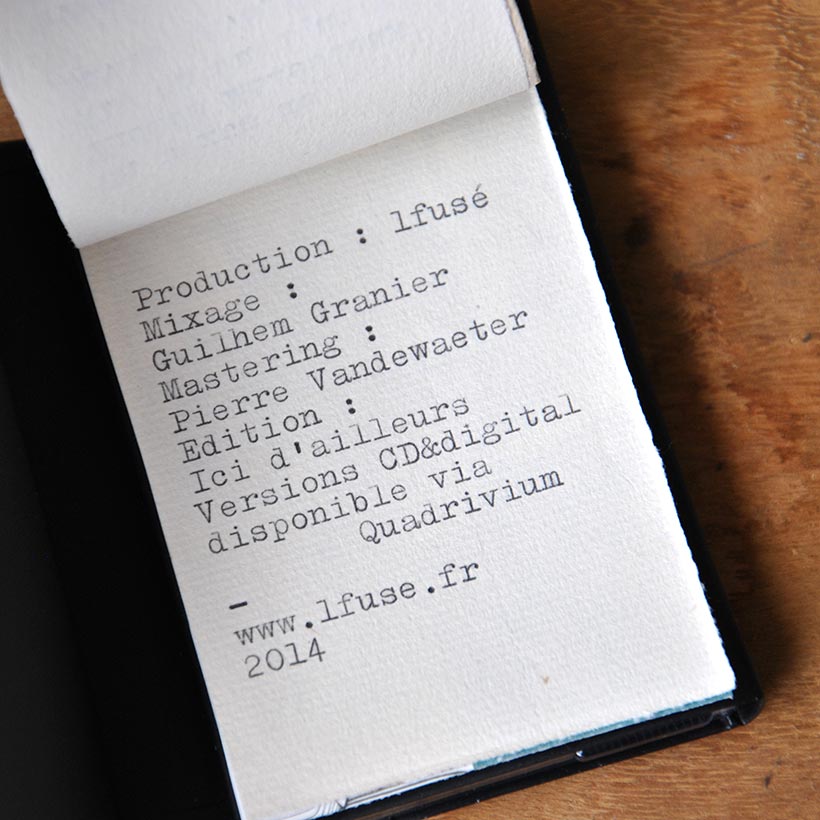 Production : lfusé
Mixage :
Guilhem Granier
Mastering :
Pierre Vandewaeter
Edition :
Ici d'ailleurs
Versions CD&digital
disponible via
Quadrivium
–
www.lfuse.fr
2014